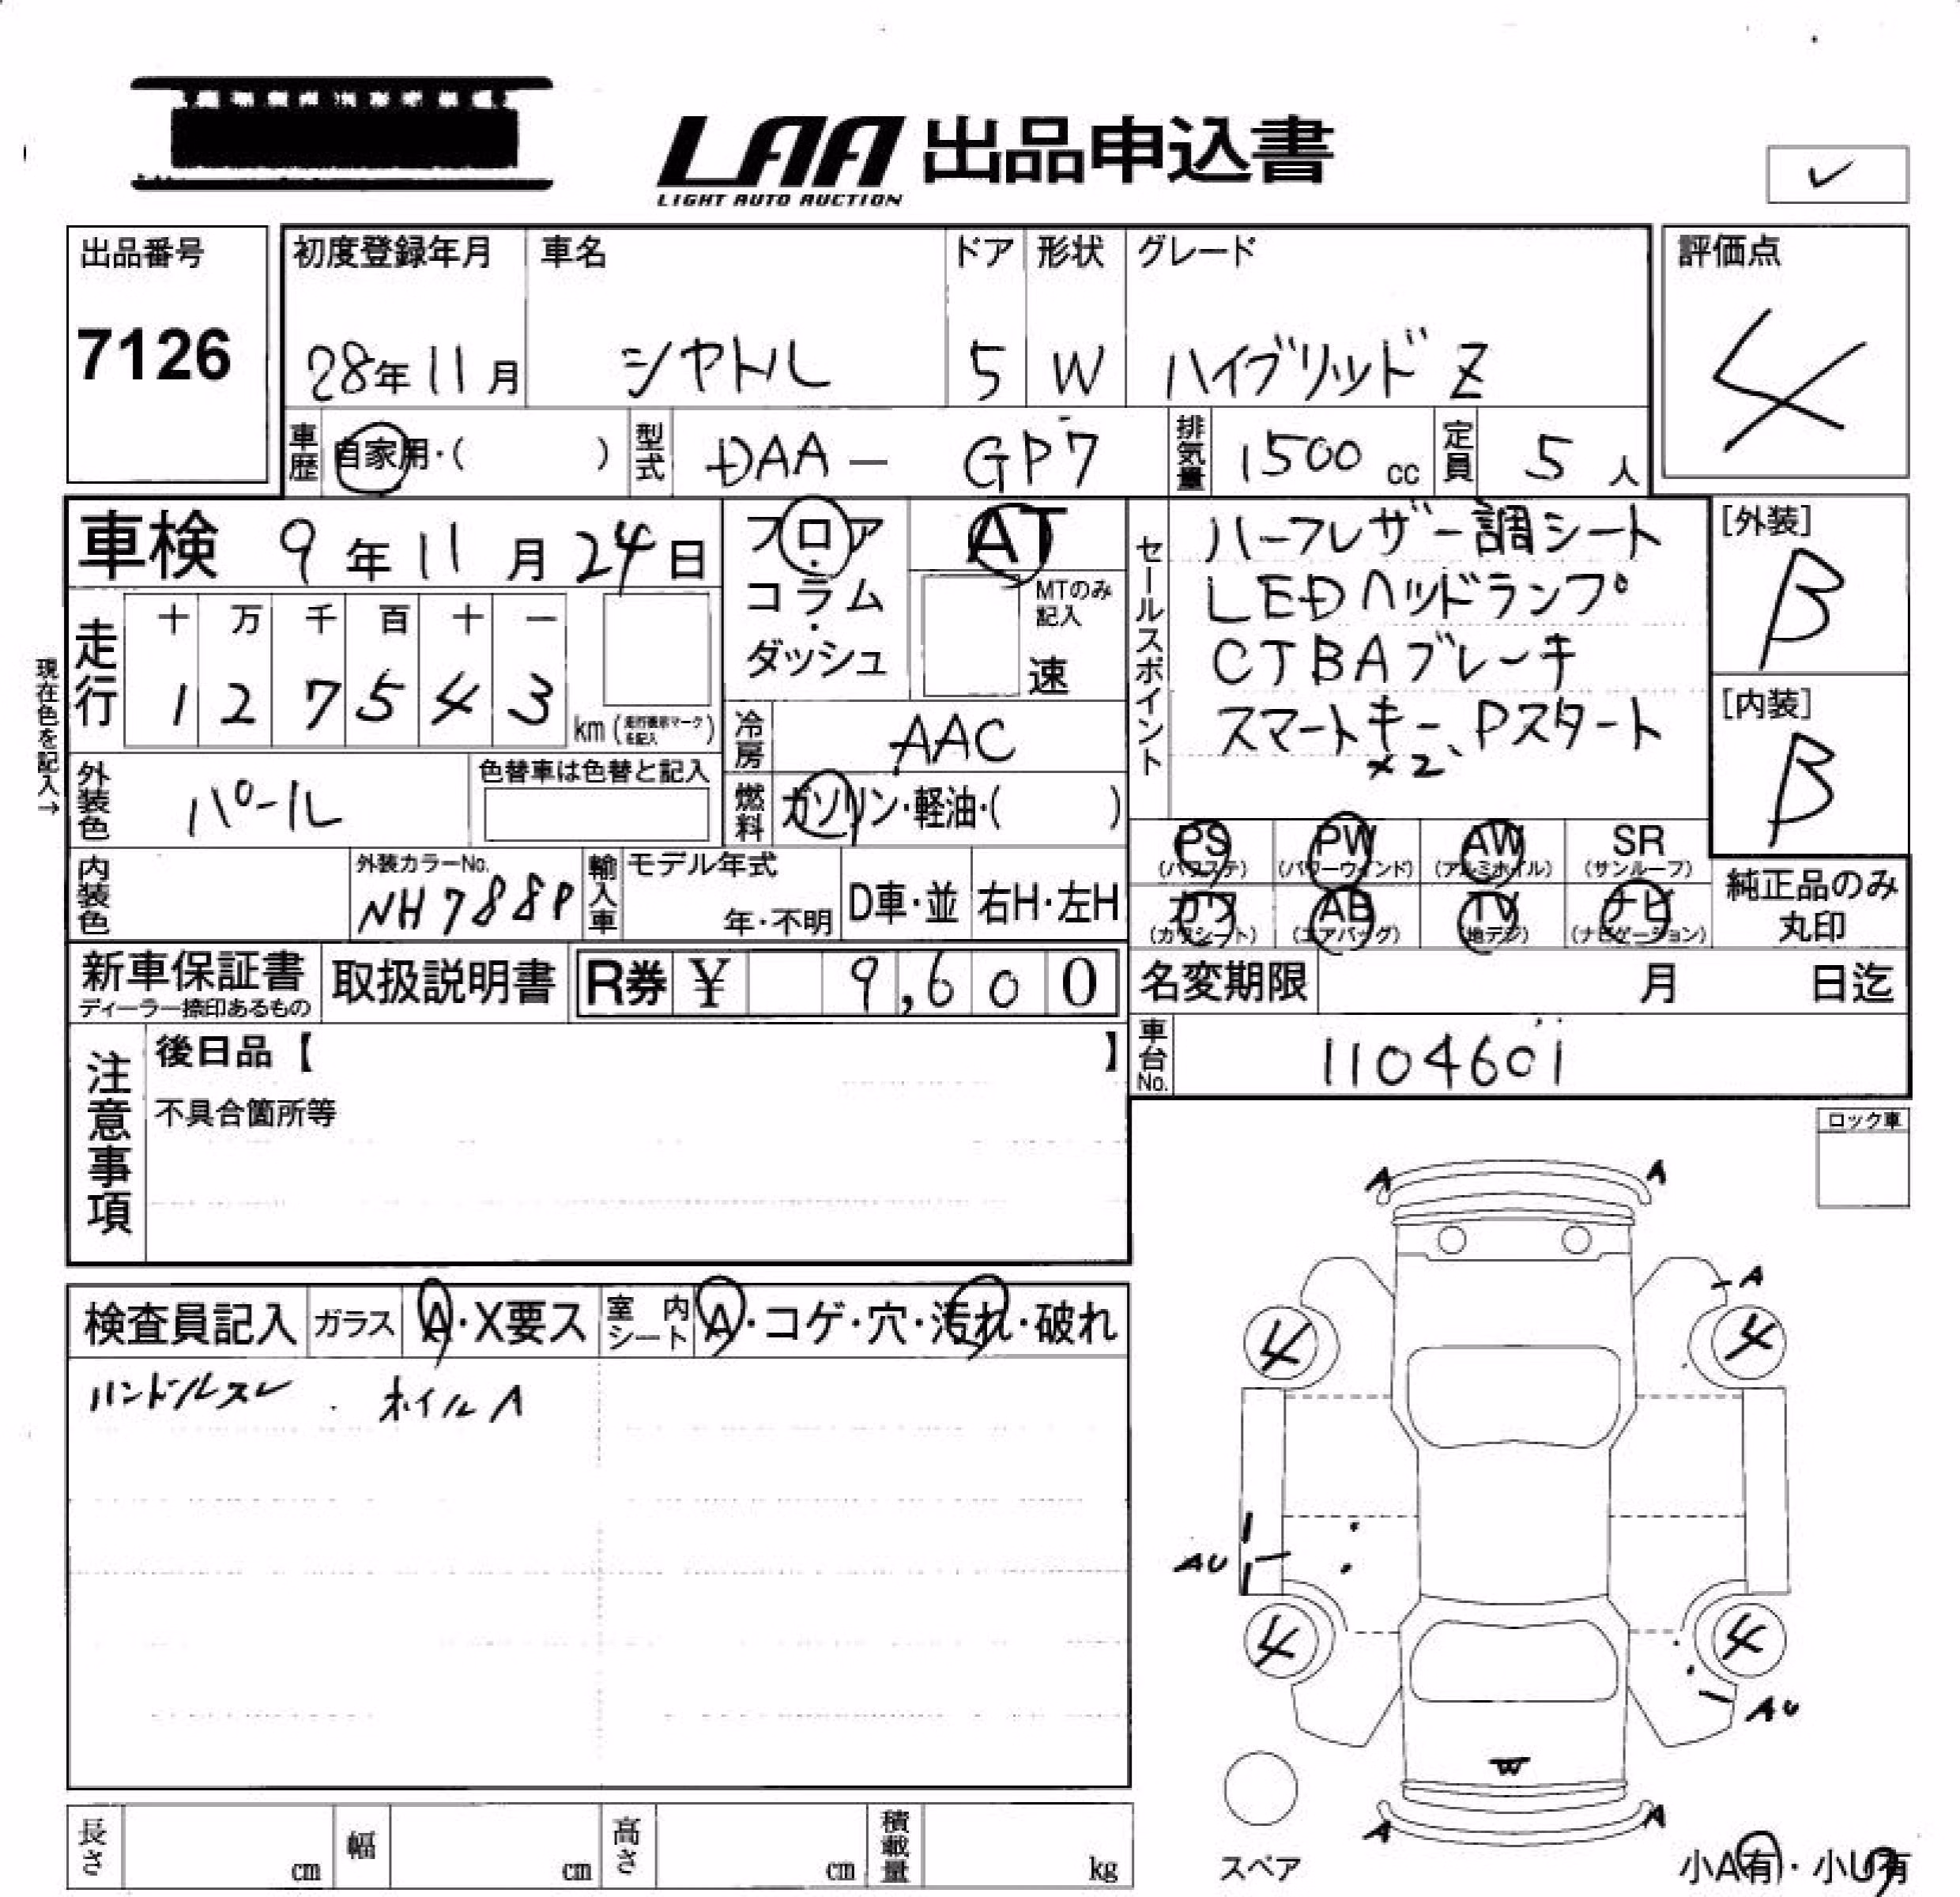 LAA 出品申込書
LIGHT AUTO AUCTION
✓
出品番号
7126
初度登録年月 車名 ドア 形状 グレード
28年11月 シャトル 5 W ハイブリッド Z
評価点
4
車歴 自家用・( ) 型式 DAA - GP7 排気量 1500 cc 定員 5 人
車検 9年11月24日
フロア・コラム・ダッシュ
AT
MTのみ記入
速
セールスポイント
ハーフレザー調シート
LEDヘッドランプ
CTBAブレーキ
スマートキー、Pスタート
×2
[外装]
B
[内装]
B
現在色を記入→
走行
十 万 千 百 十 一
1 2 7 5 4 3
km (走行表示マークを記入)
冷房 AAC
外装色 パール
色替車は色替と記入
燃料 ガソリン・軽油・( )
PS (パワステ) PW (パワーウィンド) AW (アルミホイル) SR (サンルーフ)
カワ (カワシート) AB (エアバッグ) TV (地デジ) ナビ (ナビゲーション)
純正品のみ
丸印
内装色
外装カラーNo.
NH788P
輸入車 モデル年式
年・不明 D車・並 右H・左H
新車保証書
ディーラー捺印あるもの
取扱説明書
R券 ¥ 9,600
名変期限 月 日迄
車台No. 1104601
注意事項
後日品【 】
不具合箇所等
ロック車
検査員記入 ガラス A・X要ス 室内シート A・コゲ・穴・汚れ・破れ
ハンドルスレ . ホイルA
A A
A
4 4
AU
4 4
AU
W
A A
スペア
小A有・小U有
長さ cm 幅 cm 高さ cm 積載量 kg